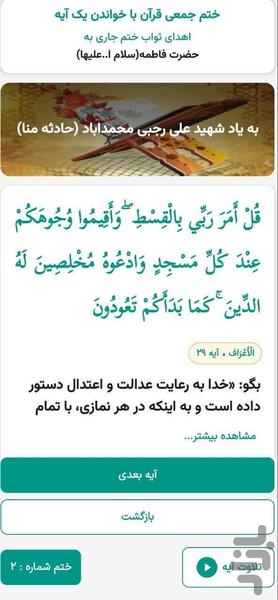 ختم جمعی قرآن با خواندن یک آیه
اهدای ثواب ختم جاری به
حضرت فاطمه(سلام ا..علیها)
به یاد شهید علی رجبی محمداباد (حادثه منا)
قُلْ أَمَرَ رَبِّي بِالْقِسْطِ ۖ وَأَقِيمُوا وُجُوهَكُمْ
عِنْدَ كُلِّ مَسْجِدٍ وَادْعُوهُ مُخْلِصِينَ لَهُ
الدِّينَ ۚ كَمَا بَدَأَكُمْ تَعُودُونَ
الْأَعْرَاف • آیه ۲۹
بگو: «خدا به رعایت عدالت و اعتدال دستور
داده است و به اینکه در هر نمازی، با تمام
مشاهده بیشتر...
آیه بعدی
بازگشت
تلاوت آیه
ختم شماره : ۲
بازار